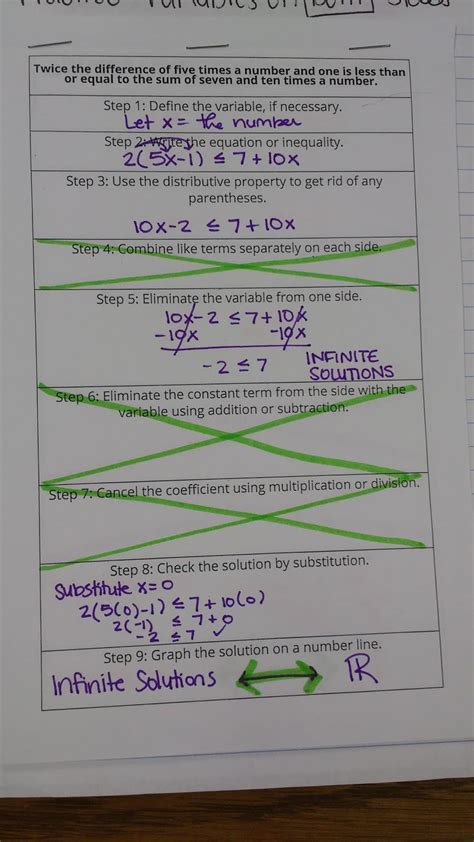 Variables on both Sides
Twice the difference of five times a number and one is less than
or equal to the sum of seven and ten times a number.
Step 1: Define the variable, if necessary.
Let x = the number
Step 2: Write the equation or inequality.
2(5x-1) ≤ 7 + 10x
Step 3: Use the distributive property to get rid of any
parentheses.
10x-2 ≤ 7+10x
Step 4: Combine like terms separately on each side.
Step 5: Eliminate the variable from one side.
10x-2 ≤ 7+10x
-10x -10x
-2 ≤ 7 INFINITE
SOLUTIONS
Step 6: Eliminate the constant term from the side with the
variable using addition or subtraction.
Step 7: Cancel the coefficient using multiplication or division.
Step 8: Check the solution by substitution.
Substitute x=0
2(5(0)-1) ≤ 7+10(0)
2(-1) ≤ 7+0
-2 ≤ 7 ✓
Step 9: Graph the solution on a number line.
Infinite Solutions ℝ